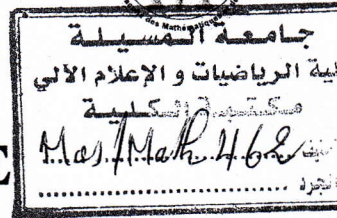 des Mathématiques
جامعة المسيلة
كلية الرياضيات و الإعلام الآلي
مكتبة الكلية
Mas/Math 462
الجرد
E